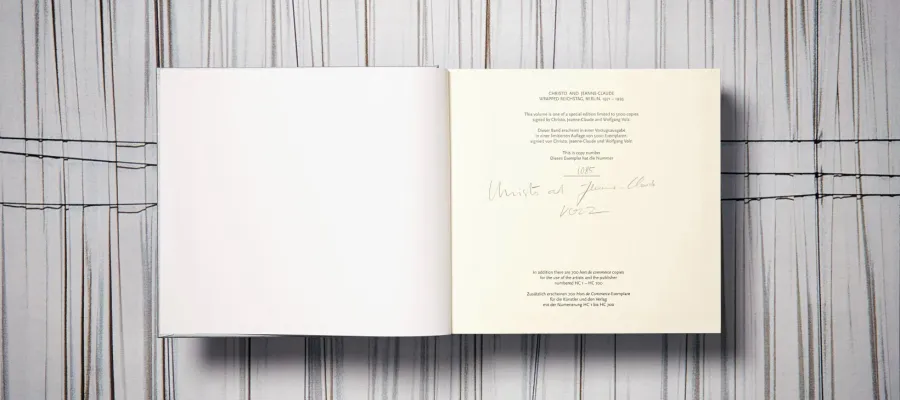 CHRISTO AND JEANNE-CLAUDE
WRAPPED REICHSTAG, BERLIN, 1971 – 1995
This volume is one of a special edition limited to 5000 copies
signed by Christo, Jeanne-Claude and Wolfgang Volz
Dieser Band erscheint in einer Vorzugsausgabe
in einer limitierten Auflage von 5000 Exemplaren
signiert von Christo, Jeanne-Claude und Wolfgang Volz
This is copy number
Dieses Exemplar hat die Nummer
Christo and Jeanne-Claude
VOLZ
In addition there are 200 hors de commerce copies
for the use of the artists and the publisher
numbered HC 1 – HC 200
Zusätzlich erscheinen 200 Hors de Commerce Exemplare
für die Künstler und den Verlag
mit der Numerierung HC 1 bis HC 200